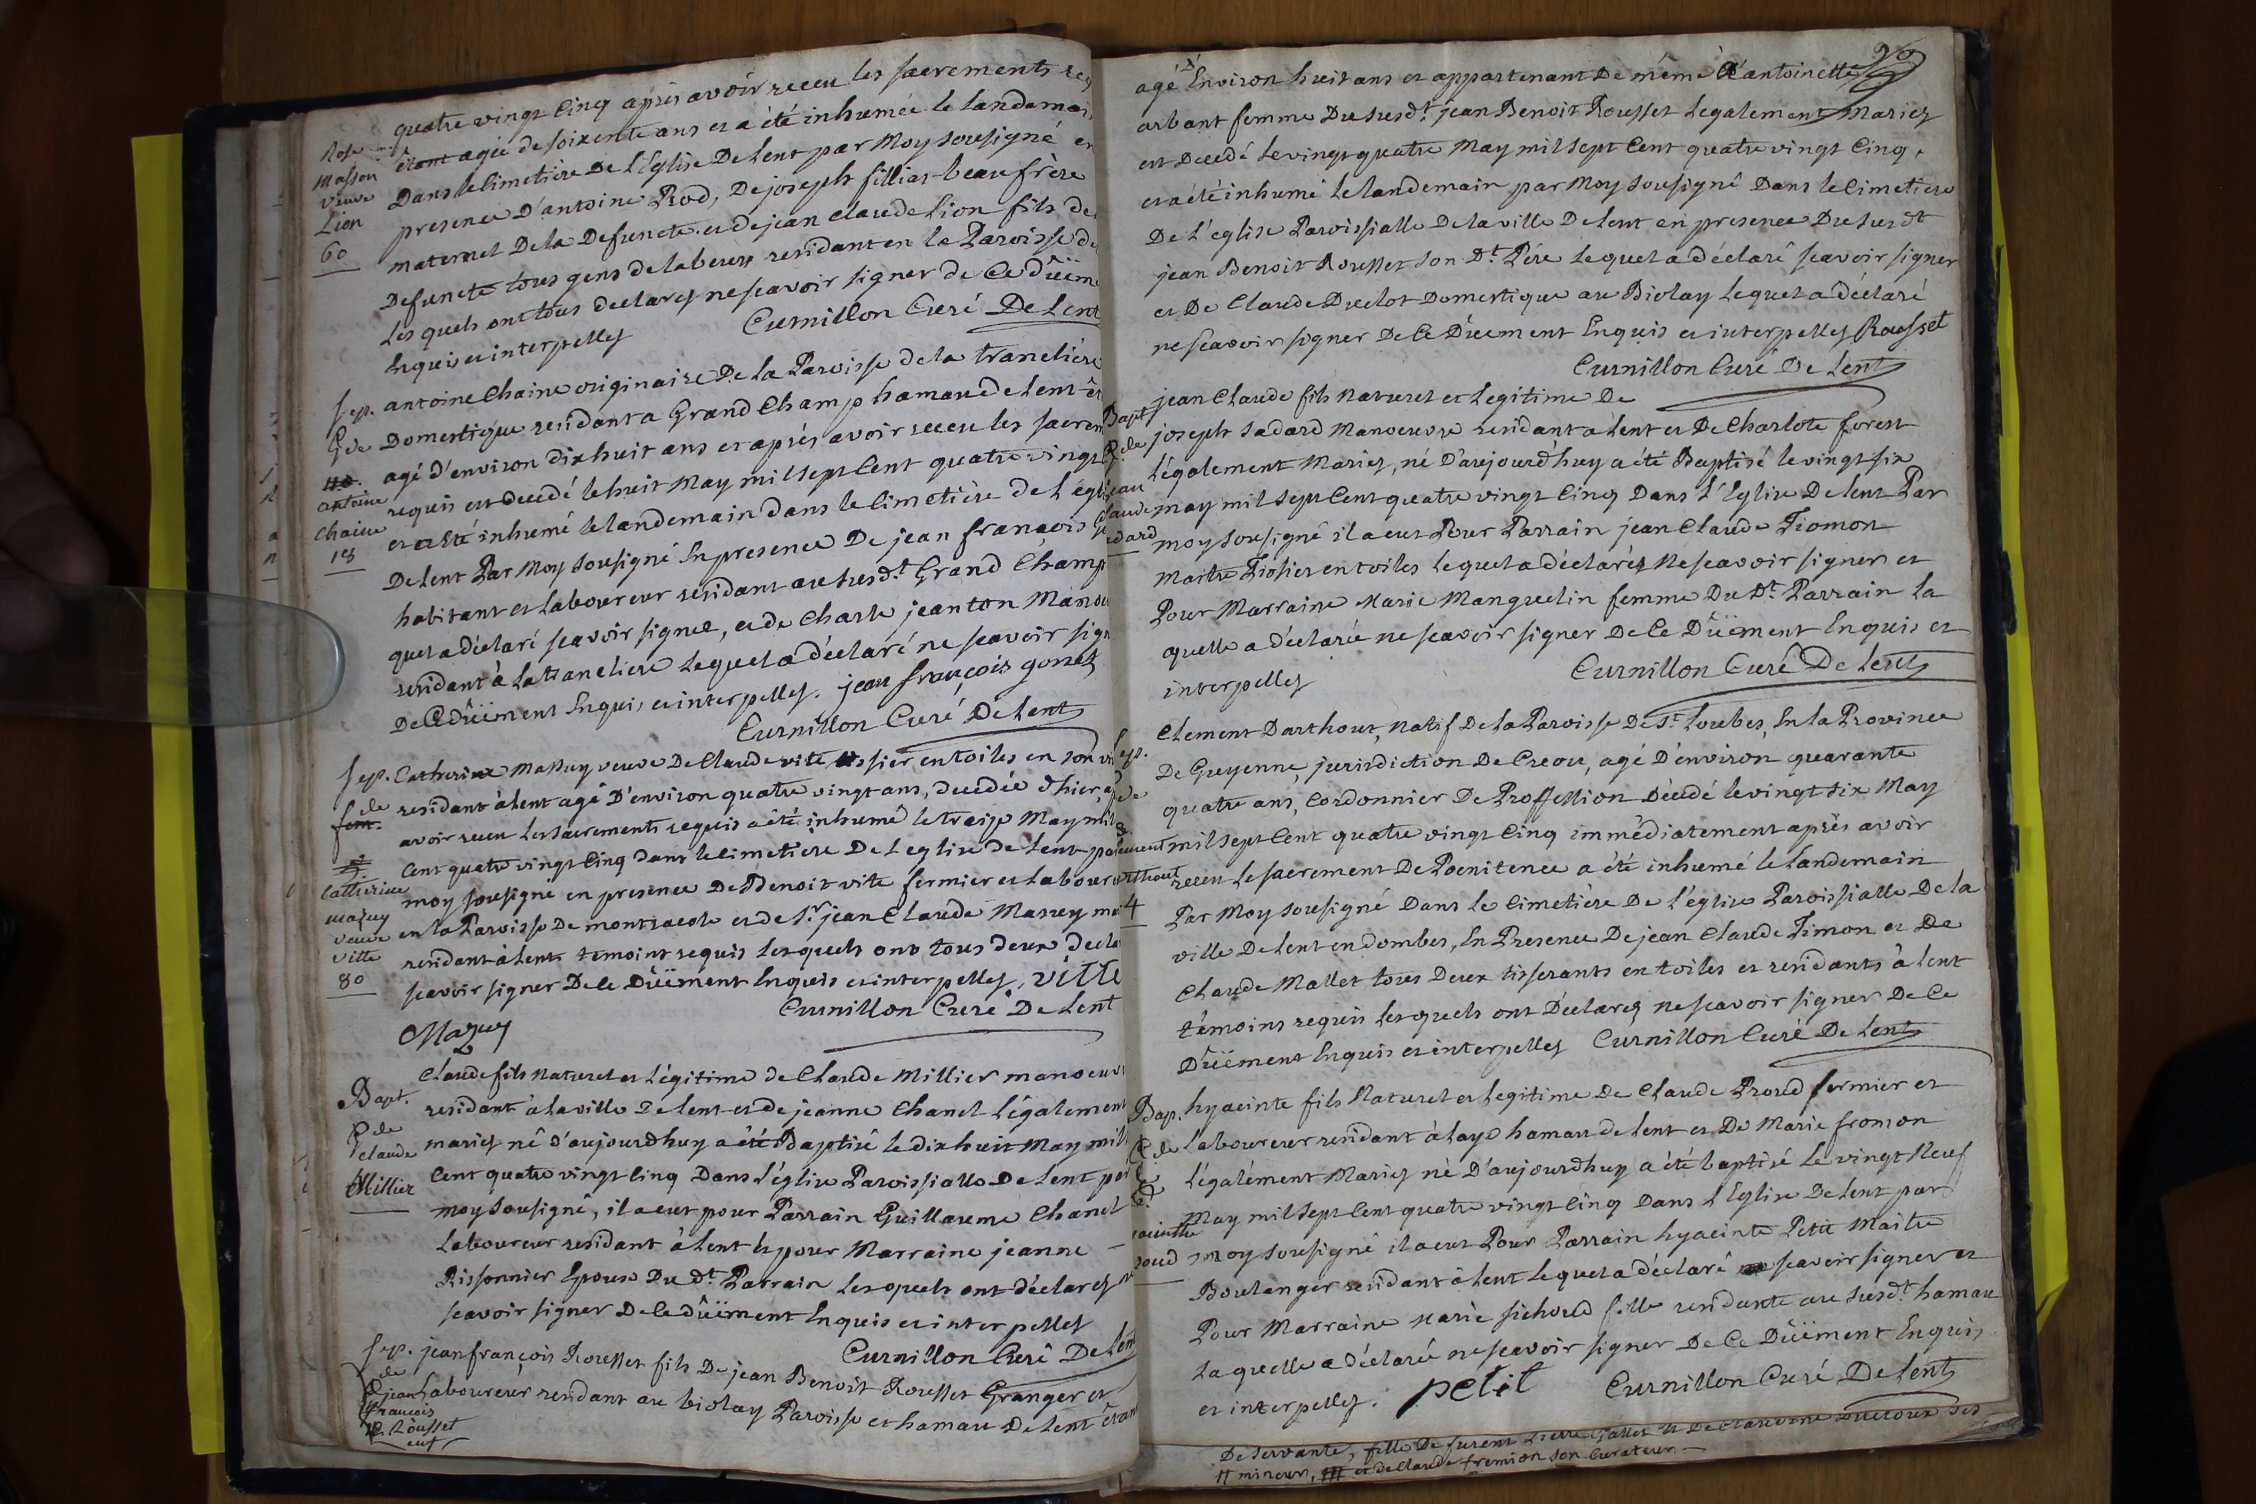 quatre vingt Cinq après avoir receu les sacrements
étant agée de soixente ans et a été inhumée le landemai
Dans le Cimetiere De L'Eglise De Lent par Moy sousigné en
presence D'antoine Rod, De joseph fillias beaufrère
maternel De la Defuncte et de jean claude Lion fils de
Defuncte tous gens de labeurs residant en la Paroisse de
Les quels ont tous declarez ne scavoir signer de Ce düëme
Enquis et interpellez Curnillon Curé De Lent
Rose
Masson
veuve
Lion
60
antoine Chaine originaire De La Paroisse de la tranclière
Domestique residant a Grand Champ hamaude Lent
agé d'environ dix huit ans et après avoir receu les sacrem
requis est decedé le huit May mil sept Cent quatre vingt
et a Eté inhumé le landemain dans le Cimetière de L'egli
De Lent Par Moy sousigné En presence De jean françois
habitant et laboureur residant au susd.t Grand Champ
quel a déclaré scavoir signer, et de Charle jeanton Mano
residant à La tranclière lequel a déclaré ne scavoir sign
De Ce düëment Enquis et interpellez. jean françois gonet
Curnillon Curé De Lent
sep.
antoine
chaine
18
Catherine Massuy veuve De Claude vite tissier en toiles en son vi
residant à Lent agé D'environ quatre vingt ans, decedée d'hier
avoir receu Les sacrements requis a été inhumé le treize May mil
Cent quatre vingt Cinq dans le Cimetière De L'eglise de Lent par
moy sousigné en presence De Benoit vite fermier et Labour
en la Paroisse De montracole et de s.r jean Claude Massuy
residant à Lent temoins requis Lesquels ont tous deux decla
scavoir signer De Ce Düëment Enquis et interpellez, vitte
Curnillon Curé De Lent
Mazuy
sep. de
Catherine
mazuy
veuve
ville
80
Claude fils naturel et Légitime de Claude Millier manoeuv
residant à La ville De Lent et de jeanne Chanel Légalement
mariez né D'aujourdhuy a été Baptisé le dix huit May mil
Cent quatre vingt Cinq Dans L'église Paroissialle De Lent par
moy sousigné, il a eut pour Parrain Guillaume Chanel
Laboureur residant à Lent et pour Marraine jeanne
Rissonnier Epouse Du d.t Parrain Lesquels ont déclarez ne
scavoir signer De Ce düëment Enquis et interpellez
Curnillon Curé De Lent
Bapt.
de
claude
Millier
jean françois Rousset fils De jean Benoit Rousset Granger et
Laboureur residant au biolay Paroisse et hamau De Lent étant
sep.
de
jean
francois
Rousset
agé Environ huit ans et appartenant De même à antoinette
arbant femme Du susd.t jean Benoit Rousset Legalement Mariez
est Decedé le vingt quatre May mil sept Cent quatre vingt Cinq,
et a été inhumé le landemain par Moy sousigné Dans le Cimetiere
De L'eglise Paroissialle De la ville De Lent en presence Du susd.t
jean Benoit Rousset son D.t Père Lequel a déclaré scavoir signer
et De Claude Duclot Domestique au Biolay Lequel a déclaré
ne scavoir signer De Ce Düëment Enquis et interpellez Rousset
Curnillon Curé De Lent
jean Claude fils naturel et Legitime De
joseph Sadard Manoeuvre residant a Lent et De Charlote forest
Légalement Mariez, né D'aujourdhuy a été Baptisé le vingt six
may mil sept Cent quatre vingt Cinq Dans L'Eglise De Lent Par
moy sousigné il a eut Pour Parrain jean Claude Tiomon
Maitre Tissier en toiles lequel a déclaréz Ne scavoir signer et
Pour Marraine Marie Manguelin femme Du D.t Parrain La
quelle a déclarée ne scavoir signer De Ce Düëment Enquis et
interpellez Curnillon Curé De Lent
Bapt
de
jean
Claude
Sadard
Clement Darthout, natif De La Paroisse De S.t Loubes, En la Province
De Guyenne, jurisdiction De Creou, agé D'environ quarante
quatre ans, Cordonnier De Proffession Décédé le vingt six May
mil sept Cent quatre vingt Cinq immédiatement après avoir
receu le sacrement De Poenitence a été inhumé le landemain
Par Moy sousigné Dans Le Cimetière De L'église Paroissialle De la
ville De Lent en dombes, En Presence De jean Claude Timon et De
Claude Mallet tous Deux tisserants en toiles et residants à Lent
témoins requis Lesquels ont Declarez ne scavoir signer De Ce
Düëment Enquis et interpellez Curnillon Curé De Lent
sep.
de
arthout
4
hyacinte fils Naturel et Legitime De Claude Proud fermier et
laboureur residant à Laye hamau de Lent et De Marie fromon
Légalement Mariez né D'aujourdhuy a été baptisé Le vingt Neuf
May mil sept Cent quatre vingt Cinq Dans L'Eglise De Lent par
moy sousigné il a eut Pour Parrain hyacinte Petit Maitre
Boulanger residant à Lent Lequel a déclaré scavoir signer et
Pour Marraine Marie sichoud fille residante au susd.t hamau
La quelle a déclarée ne scavoir signer De Ce Düëment Enquis
et interpellez. petit Curnillon Curé De Lent
Bap.
de
yacinthe
roud
De servante, fille De furent Pierre Gallet et De Claudine
mineur, et de Claude fremion son Curateur